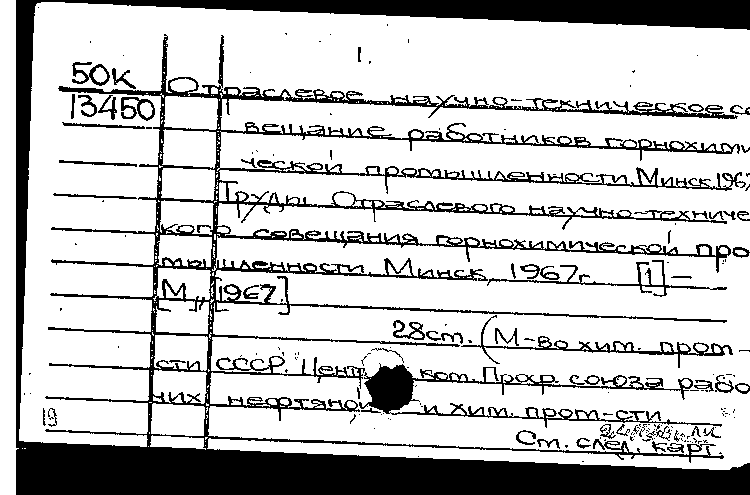 1.
50К Отраслевое научно-техническое со
13450 вещание работников горнохими
ческой промышленности. Минск. 1967
Труды Отраслевого научно-техничес
кого совещания горнохимической про
мышленности. Минск, 1967г. [1] –
[М., 1967.]
28 ст. (М-во хим. пром-
сти СССР. Центр. ком. Проф. союза рабо
чих нефтяной и хим. пром-сти.
19
Ст. след. карт.